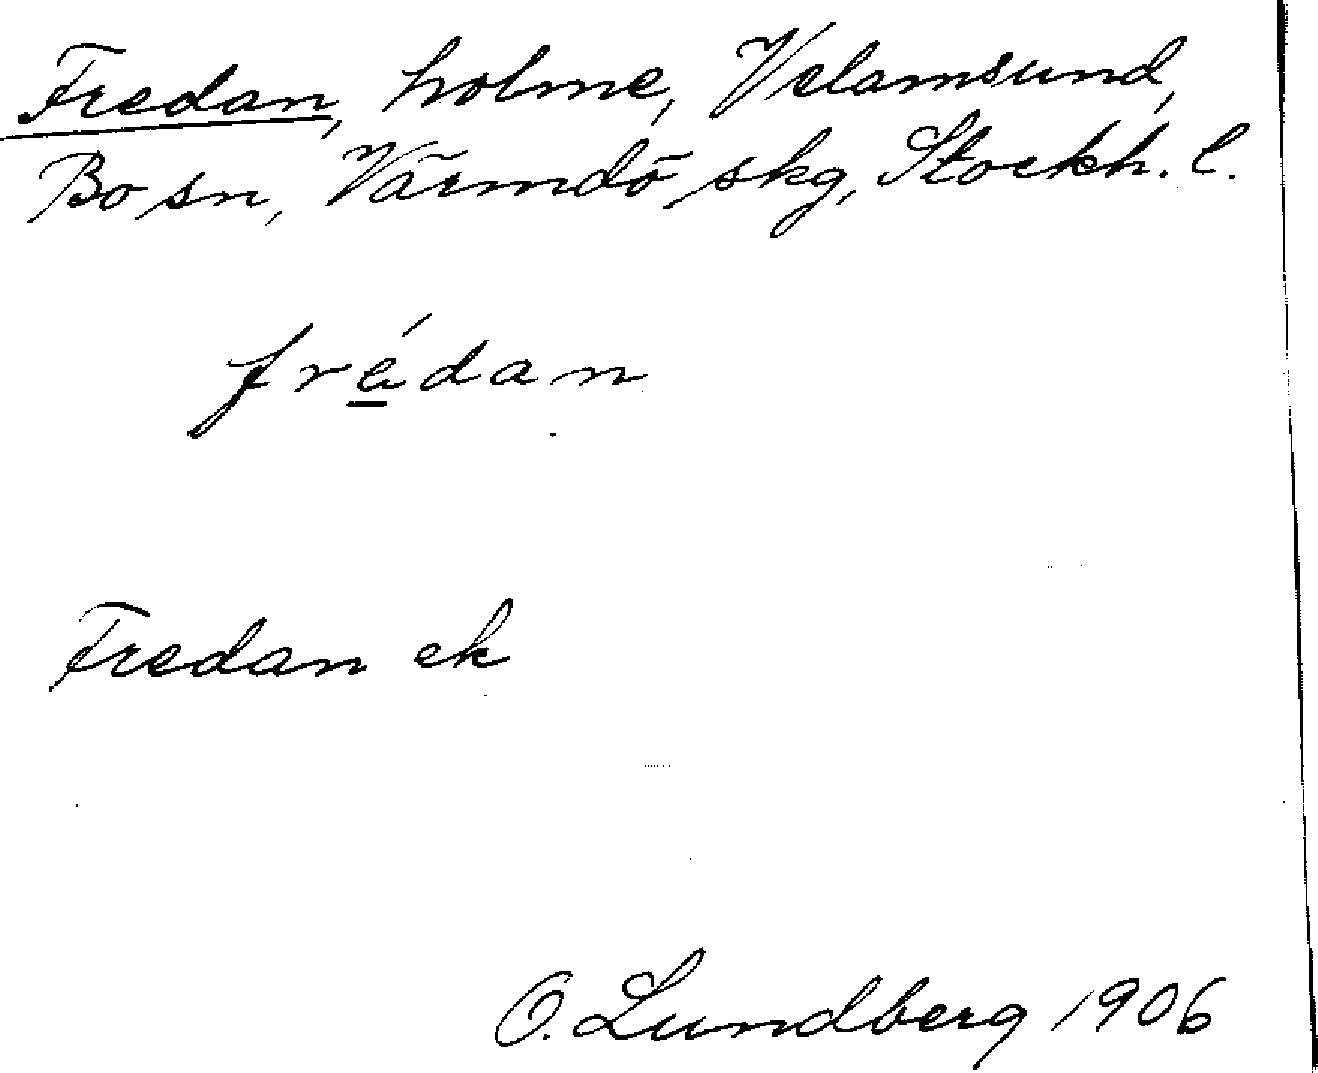 Fredan, holme, Velamsund,
Bo sn, Värmdö skg, Stockh. l.
frédan
Fredan ek
O. Lundberg 1906